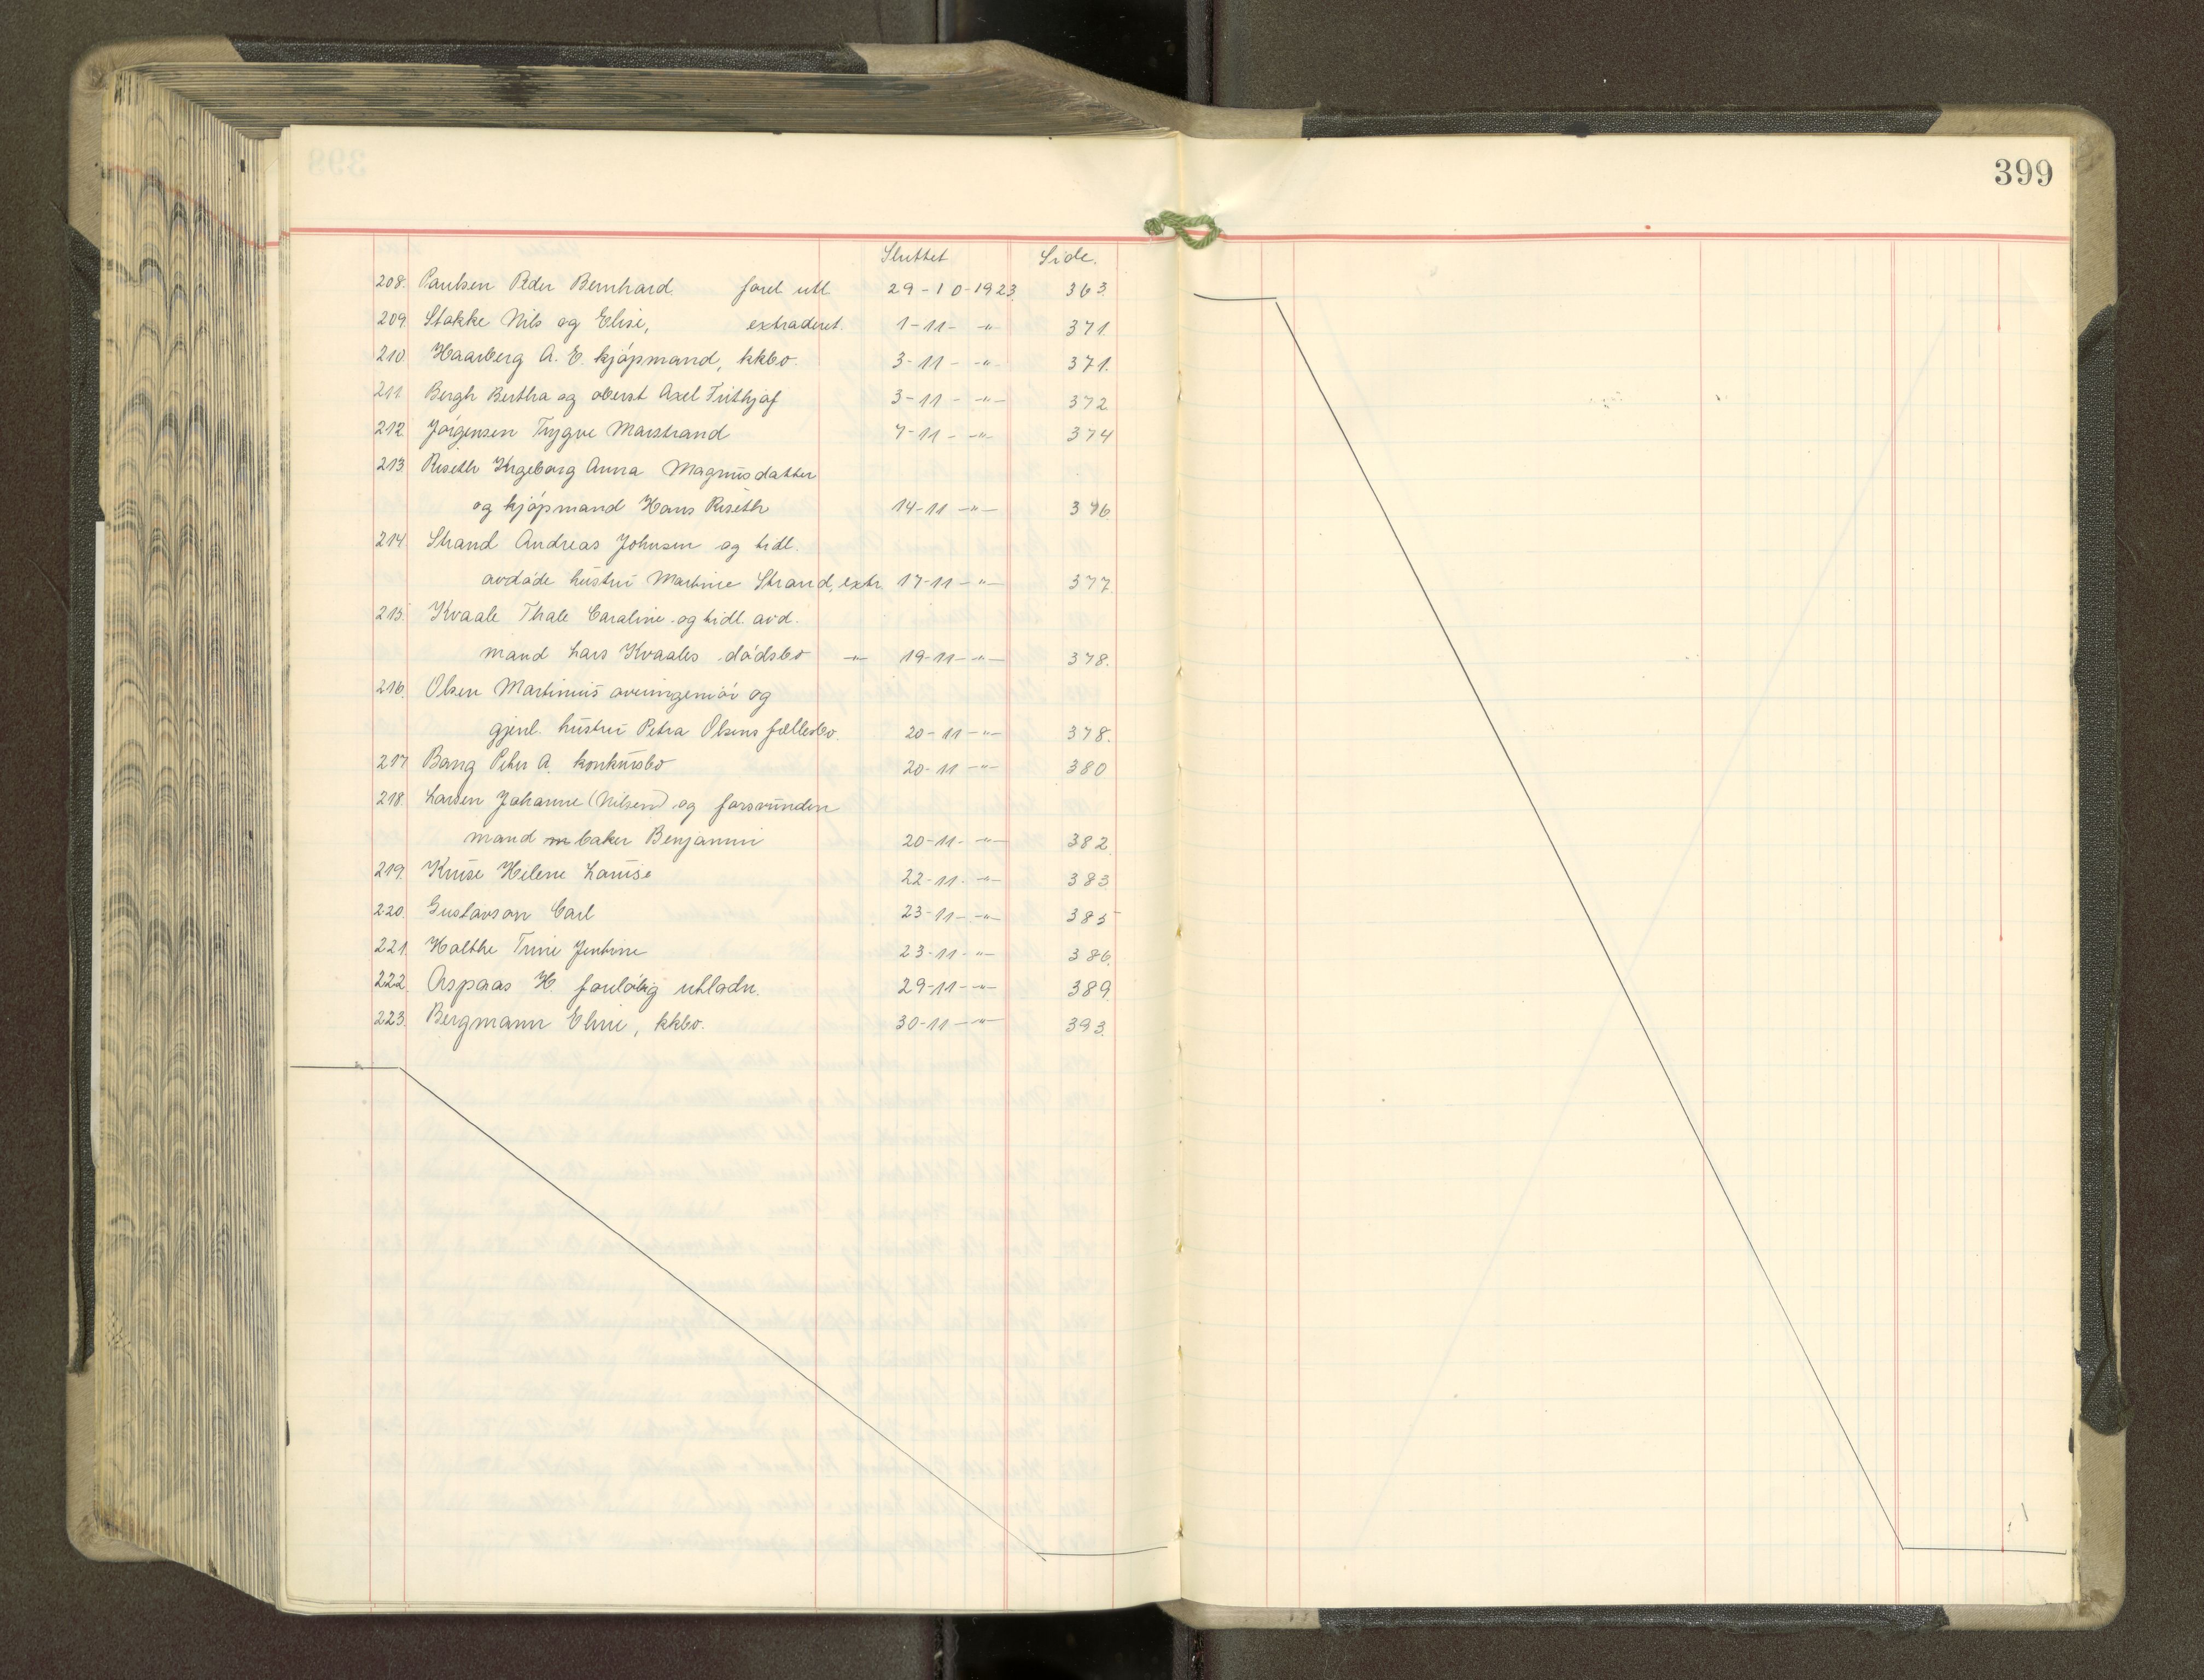 399
Sluttet Side.
208. Paulsen Peder Bernhard. forel utl 29-10-1923 363.
209. Stokke Nils og Elise, extraderet. 1-11- -"- 371.
210 Haarberg A. E. kjøpmand, kkbo. 3-11- -"- 371.
211. Bergh Bertha og oberst Axel Frithjof 3-11- -"- 372
212. Jørgensen Trygve Marstrand 7-11- -"- 374
213. Riseth Ingeborg Anna Magnusdatter
og kjøpmand Hans Riseth 14-11 -"- 376
214. Strand Andreas Johnsen og tidl.
avdøde hustru Martine Strand, extr. 17-11 -"- 377.
215. Kvaale Thale Caroline og tidl. avd.
mand Lars Kvaales dødsbo -"- 19-11- -"- 378.
216. Olsen Martinius overingeniør og
gjenl. hustru Petra Olsens fællesbo. 20-11 -"- 378.
217 Bang Peter A. konkursbo 20-11 -"- 380
218. Larsen Johanne (Nilsen) og forsvunden
mand m baker Benjamin 20-11- -"- 382.
219. Kruse Helene Louise 22-11- -"- 383.
220. Gustavson Carl 23-11- -"- 385
221. Holthe Trine Jentine 23-11- -"- 386.
222. Aspaas H. foreløbig utlodn. 29-11- -"- 389.
223. Bergmann Eline, kkbo. 30-11- -"- 393.